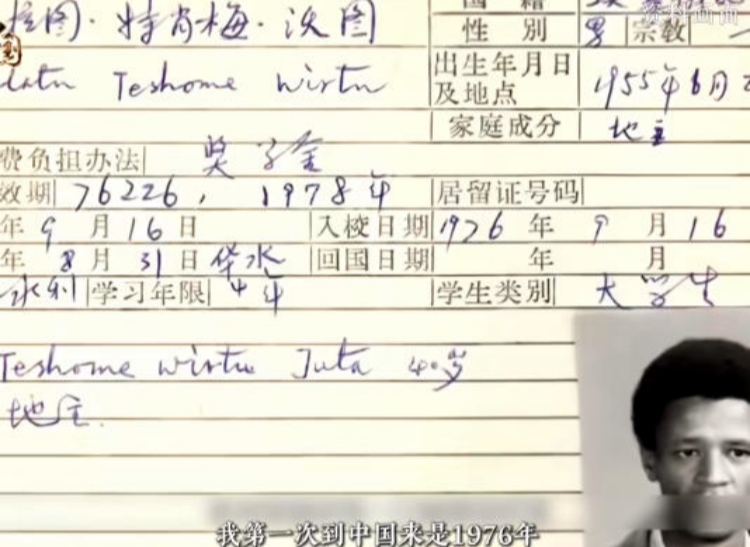 国 籍
拉图·特肖梅·沃图 性别 男 宗教
Teshome Wirtu 出生年月日及地点 1955年6月
家庭成分 地主
费负担办法 奖学金
效期 76226, 1978年 居留证号码
年 9 月 16 日 入校日期 1976 年 9 月 16
年 8 月 31 日 华水 回国日期 年 月
水利 学习年限 4年 学生类别 大学生
Teshome Wirtu Juta 40岁
地主.
我第一次到中国来是1976年